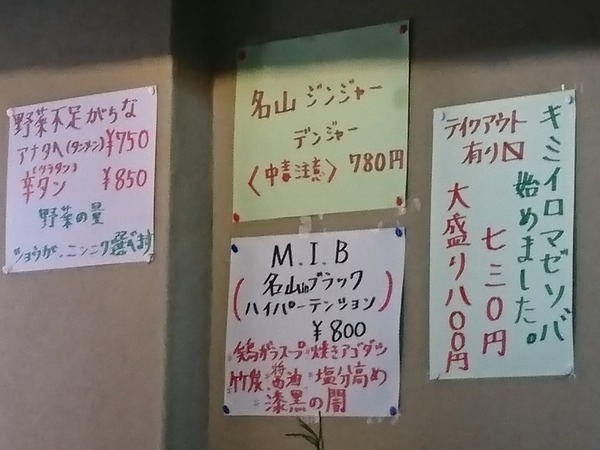 野菜不足がちな
アナタへ(タンメン)¥750
(クラタン)
辛タン ¥850
野菜の量
ショウガ、ニンニク選べます
名山ジンジャー
デンジャー
〈中毒注意〉 780円
M.I.B
(名山inブラック
ハイパーテンション)
¥800
※鶏ガラスープ※焼きアゴダシ
竹炭※醤油※塩分高め
※漆黒の闇
キミイロマゼソバ
始めました。
七三〇円
大盛り八〇〇円
テイクアウト
有り